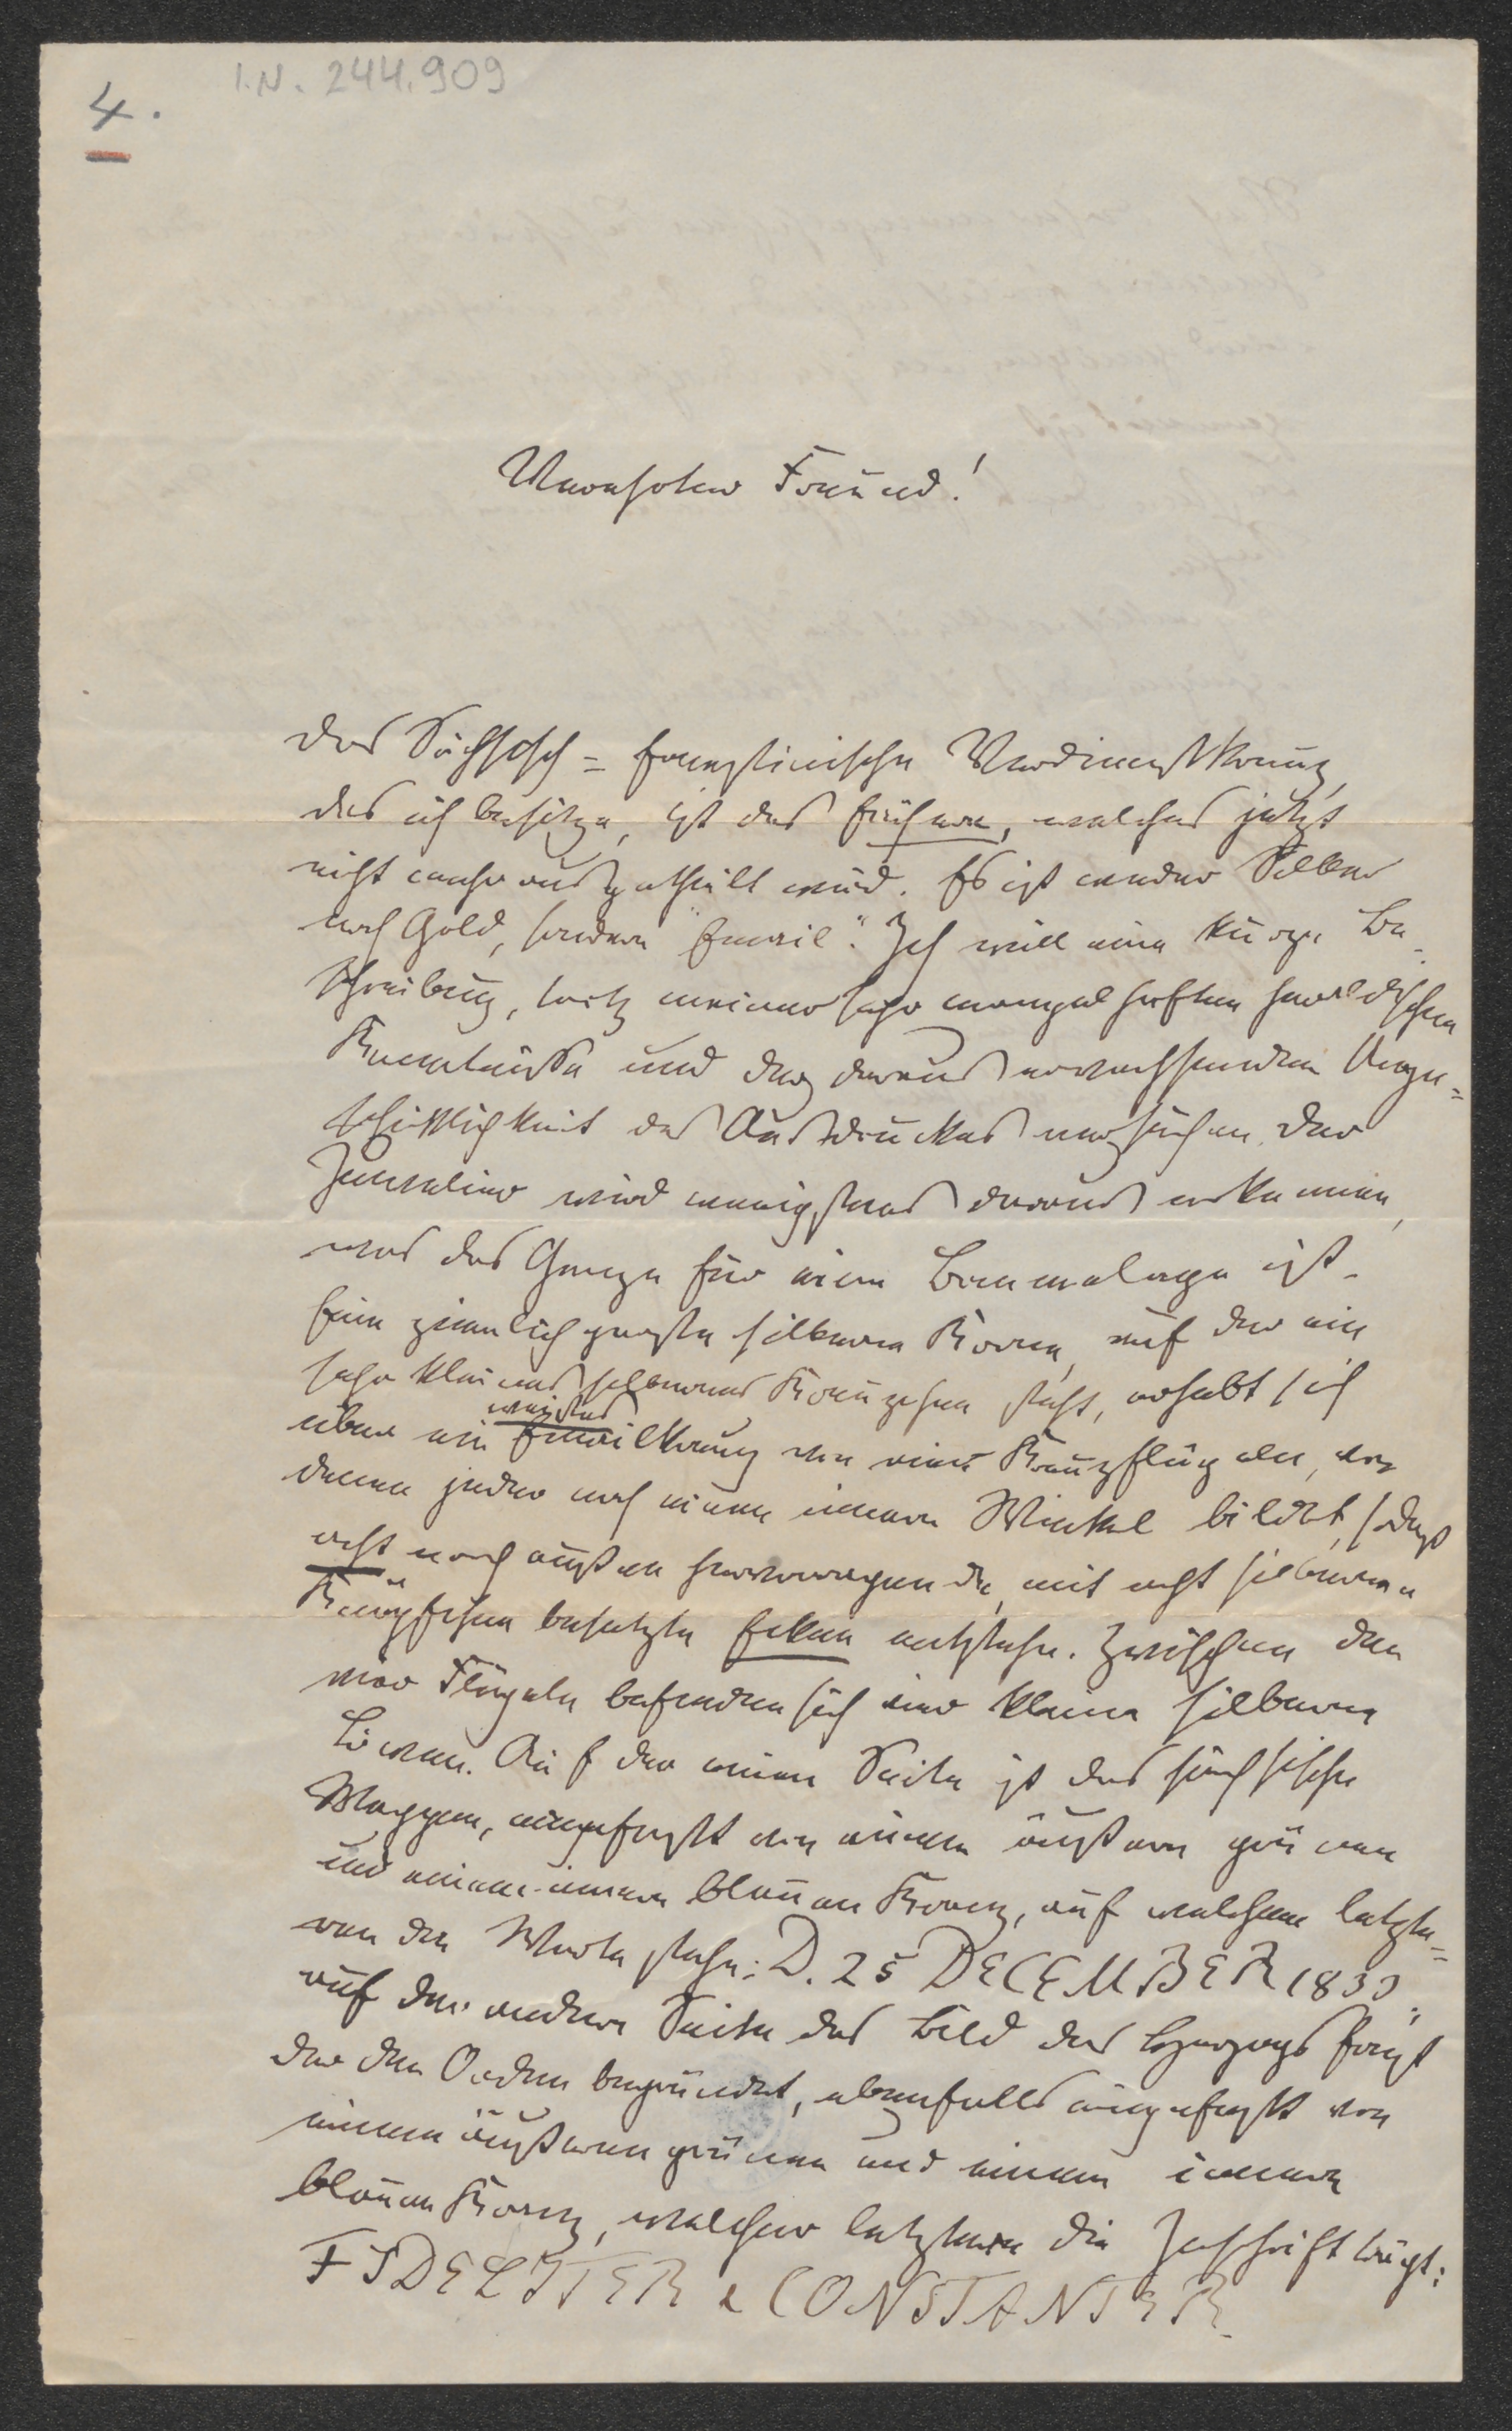 I.N. 244.909
4.
Verehrter Freund!
Das Sächsisch=Ernestinische Verdienstkreuz,
das ich besitze, ist das frühere, welches jetzt
nicht mehr ausgetheilt wird. Es ist weder Silber
noch Gold, sondern "Email". Ich will eine kurze Be-
schreibung, trotz meiner sehr mangelhaften heraldischen
Kenntnisse und der daraus erwachsenden Unge=
schicklichkeit des Ausdruckes versuchen. Der
Juwelier wird wenigstens daraus erkennen,
was das Ganze für eine Bremmelage ist.
Eine ziemlich große silberne Krone, auf der ein
sehr kleines silbernes Kreuzchen steht, erhebt sich
weißes
über ein Emailkreuz von vier Kreuzflügeln, von
denen jeder noch einen innern Winkel bildet, sodaß
acht nach außen hervorragende, mit acht silbernen
Knöpfchen besetzte Ecken entstehn. Zwischen den
vier Flügeln befinden sich vier kleine silberne
Löwen. Auf der einen Seite ist das sächsische
Wappen, eingefaßt von einem äußern grünen
und einem innern blauen Kranz, auf welchem letzte=
ren die Worte stehn: D. 25 DECEMBER 1833.
auf der andern Seite das Bild des Herzogs Ernst
der den Orden begründet, ebenfalls eingefaßt von
einem äußeren grünen und einem innern
blauen Kranz, welcher letztere die Inschrift trägt:
FIDELITER & CONSTANTER